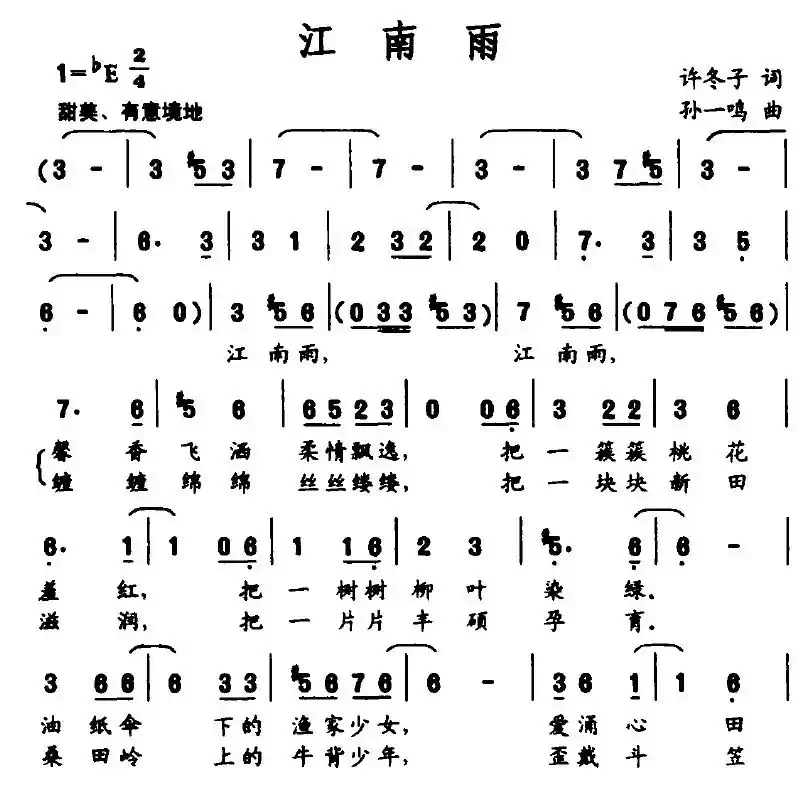 江 南 雨
1=♭E 2/4
许冬子 词
甜美、有意境地
孙一鸣 曲
(3 - | 3 #5 3 | 7 - | 7 - | 3 - | 3 7 #5 | 3 -
3 - | 6. 3 | 3 1 | 2 3 2 | 2 0 | 7. 3 | 3 5
6 - | 6 0) | 3 #5 6 | (0 3 3 #5 3) | 7 #5 6 | (0 7 6 #5 6) |
江 南 雨, 江 南 雨,
7. 6 | #5 6 | 6 5 2 3 | 0 0 6 | 3 2 2 | 3 6
馨 香 飞 洒 柔 情 飘 逸, 把 一 簇 簇 桃 花
缠 缠 绵 绵 丝 丝 缕 缕, 把 一 块 块 新 田
6. 1 | 1 0 6 | 1 1 6 | 2 3 | #5. 6 | 6 -
羞 红, 把 一 树 树 柳 叶 染 绿.
滋 润, 把 一 片 片 丰 硕 孕 育.
3 6 6 | 6 3 3 | #5 6 7 6 | 6 - | 3 6 1 | 1 6
油 纸 伞 下 的 渔 家 少 女, 爱 涌 心 田
桑 田 岭 上 的 牛 背 少 年, 歪 戴 斗 笠